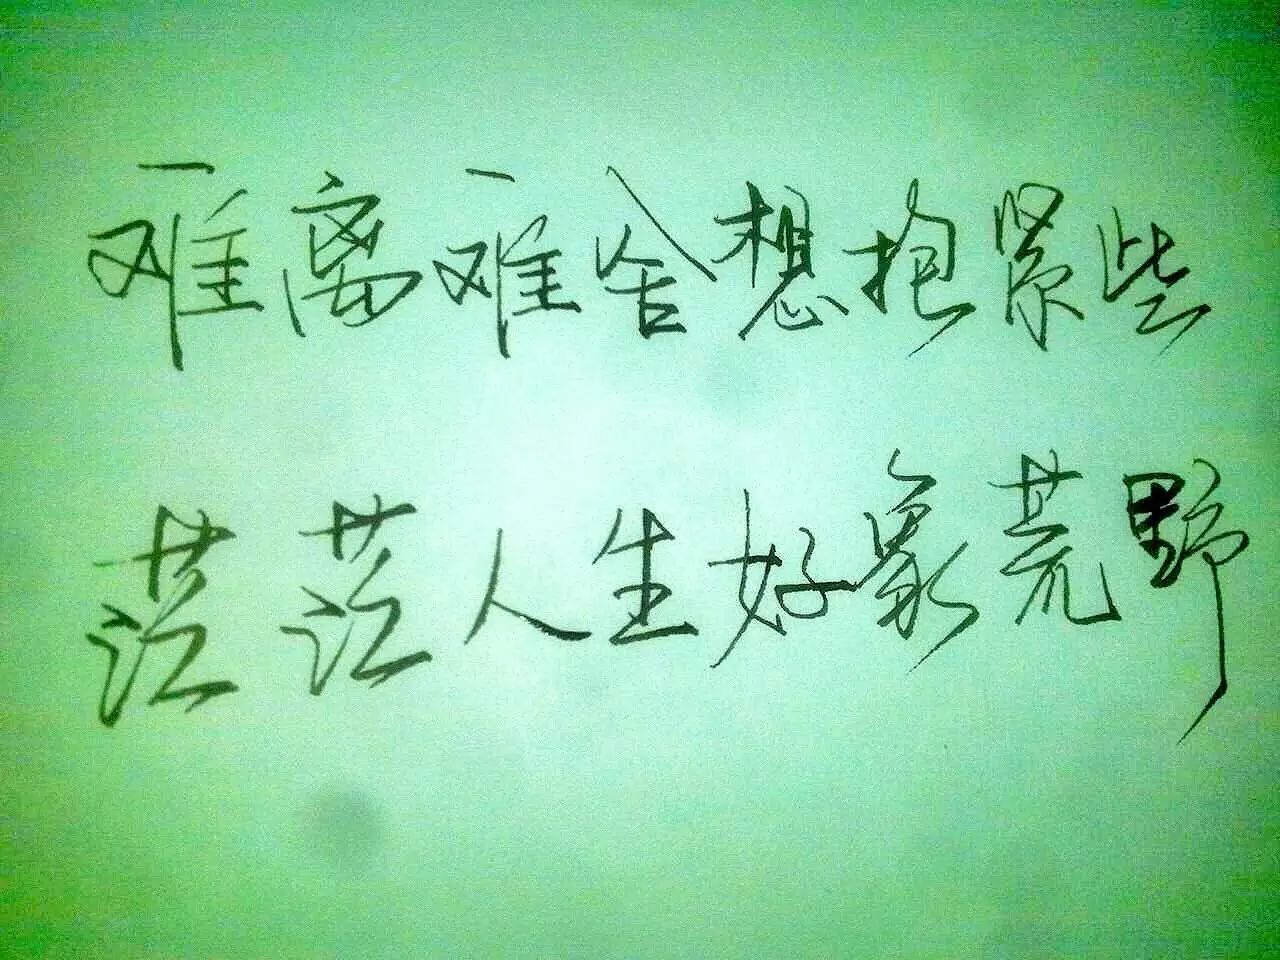 难离难舍想抱紧些
茫茫人生好象荒野